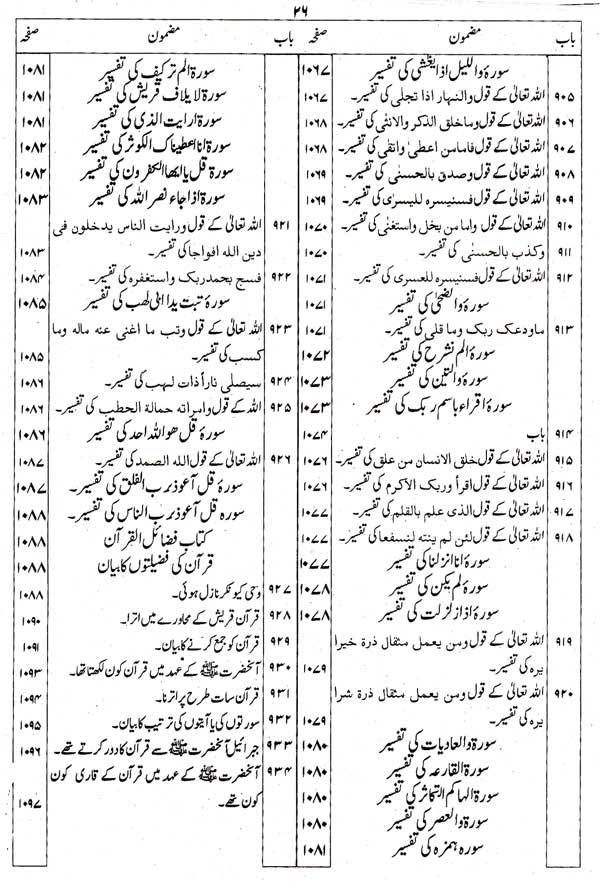 ۲۶
باب مضمون صفحہ
سورۃ واللیل اذا یغشٰی کی تفسیر ۱۰۶۷
۹۰۵ اللہ تعالیٰ کے قول والنہار اذا تجلی کی تفسیر۔ ۱۰۶۷
۹۰۶ اللہ تعالیٰ کے قول وما خلق الذکر والانثٰی کی تفسیر۔ ۱۰۶۸
۹۰۷ اللہ تعالیٰ کے قول فاما من اعطیٰ واتقی کی تفسیر۔ ۱۰۶۸
۹۰۸ اللہ تعالیٰ کے قول وصدق بالحسنٰی کی تفسیر۔ ۱۰۶۹
۹۰۹ اللہ تعالیٰ کے قول فسنیسرہ للیسری کی تفسیر۔ ۱۰۶۹
۹۱۰ اللہ تعالیٰ کے قول واما من بخل واستغنٰی کی تفسیر۔ ۱۰۷۰
۹۱۱ وکذب بالحسنٰی کی تفسیر۔ ۱۰۷۰
۹۱۲ اللہ تعالیٰ کے قول فسنیسرہ للعسری کی تفسیر۔ ۱۰۷۱
سورۃ والضحٰی کی تفسیر ۱۰۷۱
۹۱۳ ماودعک ربک وما قلی کی تفسیر۔ ۱۰۷۱
سورۃ الم نشرح کی تفسیر ۱۰۷۲
سورۃ والتین کی تفسیر ۱۰۷۳
سورۃ اقراء باسم ربک کی تفسیر ۱۰۷۳
۹۱۴ باب ۱۰۷۴
۹۱۵ اللہ تعالیٰ کے قول خلق الانسان من علق کی تفسیر۔ ۱۰۷۶
۹۱۶ اللہ تعالیٰ کے قول اقرأ وربک الاکرم کی تفسیر۔ ۱۰۷۶
۹۱۷ اللہ تعالیٰ کے قول الذی علم بالقلم کی تفسیر۔ ۱۰۷۷
۹۱۸ اللہ تعالیٰ کے قول لئن لم ینتہ لنسفعا کی تفسیر۔ ۱۰۷۷
سورۃ انا انزلنا کی تفسیر ۱۰۷۷
سورۃ لم یکن کی تفسیر ۱۰۷۸
سورۃ اذا زلزلت کی تفسیر ۱۰۷۸
۹۱۹ اللہ تعالیٰ کے قول ومن یعمل مثقال ذرۃ خیرا
یرہ کی تفسیر۔ ۱۰۷۹
۹۲۰ اللہ تعالیٰ کے قول ومن یعمل مثقال ذرۃ شرا
یرہ کی تفسیر۔ ۱۰۷۹
سورۃ والعادیات کی تفسیر ۱۰۸۰
سورۃ القارعہ کی تفسیر ۱۰۸۰
سورۃ الہاکم التکاثر کی تفسیر ۱۰۸۰
سورۃ والعصر کی تفسیر ۱۰۸۰
سورہ ہمزہ کی تفسیر ۱۰۸۱
باب مضمون صفحہ
سورۃ الم ترکیف کی تفسیر ۱۰۸۱
سورۃ لایلاف قریش کی تفسیر ۱۰۸۱
سورۃ ارایت الذی کی تفسیر ۱۰۸۱
سورۃ انا اعطیناک الکوثر کی تفسیر ۱۰۸۲
سورۃ قل یاایھا الکفرون کی تفسیر ۱۰۸۲
سورۃ اذا جاء نصر اللہ کی تفسیر ۱۰۸۳
۹۲۱ اللہ تعالیٰ کے قول ورایت الناس یدخلون فی
دین اللہ افواجا کی تفسیر۔ ۱۰۸۳
۹۲۲ فسبح بحمد ربک واستغفرہ کی تفسیر۔ ۱۰۸۴
سورۃ تبت یدا ابی لھب کی تفسیر ۱۰۸۵
۹۲۳ اللہ تعالیٰ کے قول وتب ما اغنی عنہ مالہ وما
کسب کی تفسیر۔ ۱۰۸۵
۹۲۴ سیصلی ناراً ذات لہب کی تفسیر۔ ۱۰۸۶
۹۲۵ اللہ کے قول وامراتہ حمالة الحطب کی تفسیر۔ ۱۰۸۶
سورۃ قل ھو اللہ احد کی تفسیر ۱۰۸۶
۹۲۶ اللہ تعالیٰ کے قول اللہ الصمد کی تفسیر۔ ۱۰۸۷
سورۃ قل آعوذ برب الفلق کی تفسیر۔ ۱۰۸۷
سورہ قل آعوذ برب الناس کی تفسیر۔ ۱۰۸۸
کتاب فضائل القرآن ۱۰۸۸
قرآن کی فضیلتوں کا بیان ۱۰۸۸
۹۲۷ وحی کیونکر نازل ہوئی۔ ۱۰۸۸
۹۲۸ قرآن قریش کے محاورے میں اترا۔ ۱۰۹۰
۹۲۹ قرآن کو جمع کرنے کا بیان۔ ۱۰۹۱
۹۳۰ آنحضرت ﷺ کے عہد میں قرآن کون لکھتا تھا۔ ۱۰۹۳
۹۳۱ قرآن سات طرح پر اترنا۔ ۱۰۹۴
۹۳۲ سورتوں کی یا آیتوں کی ترتیب کا بیان۔ ۱۰۹۵
۹۳۳ جبرائیل آنحضرت ﷺ سے قرآن کا دور کرتے تھے۔ ۱۰۹۶
۹۳۴ آنحضرت ﷺ کے عہد میں قرآن کے قاری کون
کون تھے۔ ۱۰۹۷